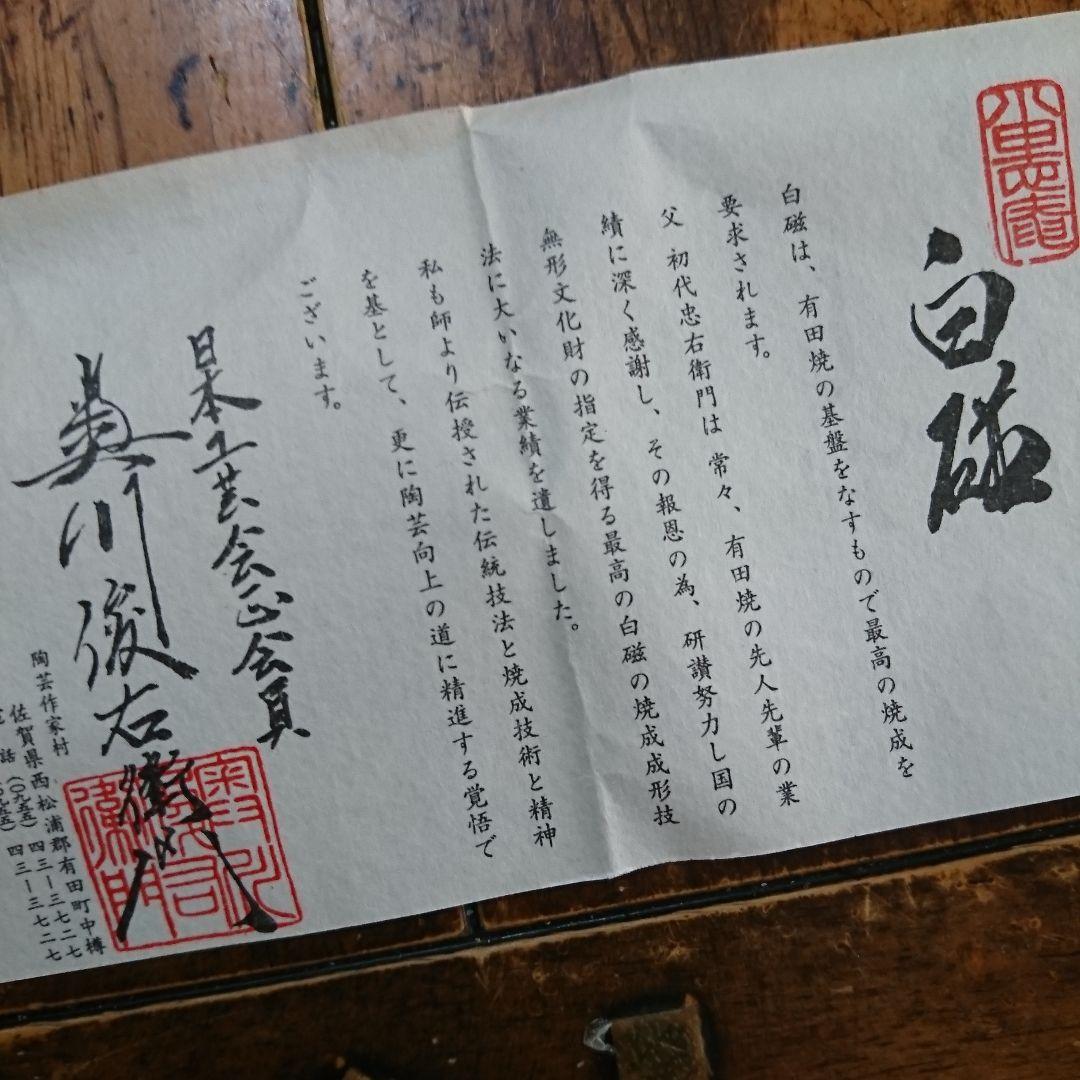 白磁
白磁は、有田焼の基盤をなすもので最高の焼成を
要求されます。
父 初代忠右衛門は 常々、有田焼の先人先輩の業
績に深く感謝し、その報恩の為、研讃努力し国の
無形文化財の指定を得る最高の白磁の焼成成形技
法に大いなる業績を遺しました。
私も師より伝授された伝統技法と焼成技術と精神
を基として、更に陶芸向上の道に精進する覚悟で
ございます。
日本工芸会正会員
奥川俊右衛門
陶芸作家村
佐賀県西松浦郡有田町中樽
話(〇九五五)四三-三七二七
四三-三七二七